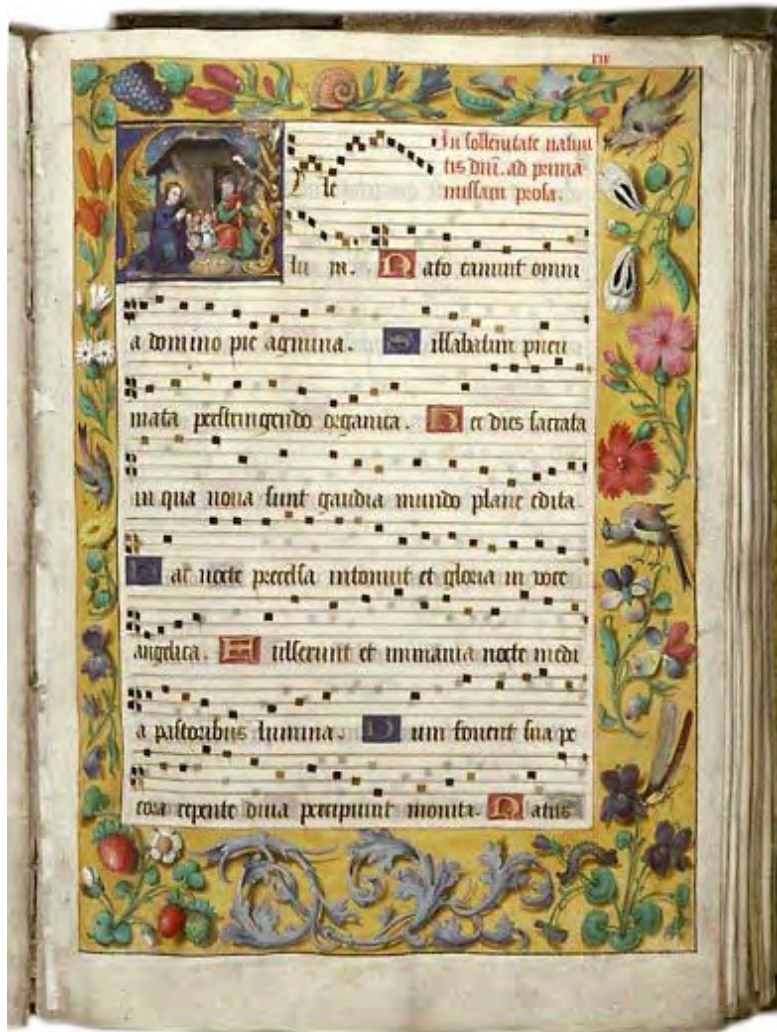 In sollenitate nativi
tis dni. ad primā
missam prosa.
Alle
lu ia. Nato canunt omni
a domino pie agmina. Sillabatim pneu
mata perstringendo organica. Hec dies sacrata
in qua nova sunt gaudia mundo plane edita.
Hac nocte precelsa intonuit et gloria in voce
angelica. Fulserunt et immania nocte medi
a pastoribus lumina. Dum fovent sua pe
cora repente diva percipiunt monita. Natus